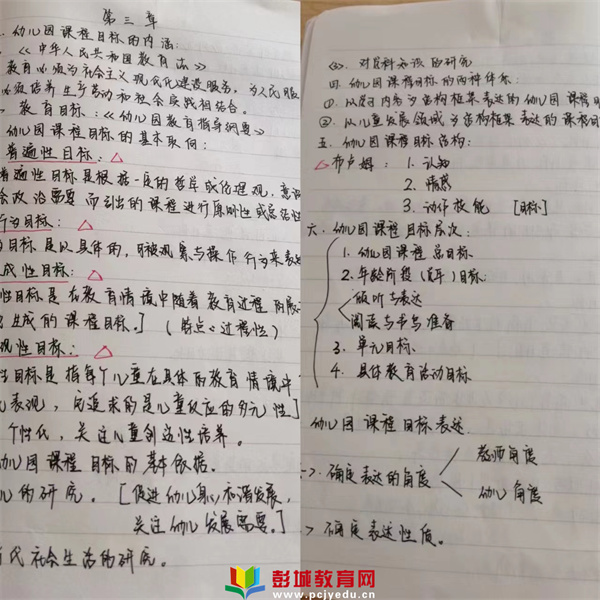 第三章
幼儿园课程目标的内涵:
《中华人民共和国教育法》
教育必须为社会主义现代化建设服务, 为人民服
必须培养 生产劳动和社会实践相结合。
教育目标:《幼儿园教育指导纲要》
幼儿园课程目标的基本取向:
普遍性目标:
普遍性目标是根据一定的哲学或伦理观, 意识
会政治需要 而引出的课程进行原则性或总括性
行为目标:
目标是以具体的, 可被观察与操作 行为来表述
成性目标:
性目标是在教育情境中随着教育过程的展
生成的课程目标。] (特点:过程性)
现性目标:
性目标是指每个儿童在具体的教育情境中
表现, 它追求的是儿童反应的多元性]
个性化, 关注儿童创造性培养。
幼儿园课程目标的基本依据。
儿的研究。 [促进幼儿身心和谐发展,
关注幼儿发展需要。]
代社会生活的研究。
(3). 对学科知识的研究
四. 幼儿园课程目标的两种体系:
①. 以 内容为结构框架表达的幼儿园课程目
②. 从儿童发展领域为结构框架表达的课程目
五. 幼儿园课程目标结构:
布卢姆: 1. 认知
2. 情感
3. 动作技能 [目标]
六. 幼儿园课程目标层次:
1. 幼儿园课程总目标
2. 年龄阶段(学年)目标:
倾听与表达
阅读与书写准备
3. 单元目标
4. 具体教育活动目标
幼儿园课程目标表达
确定表达的角度 教师角度
幼儿角度
确定表达性质。
彭城教育网
www.pcjyedu.cn